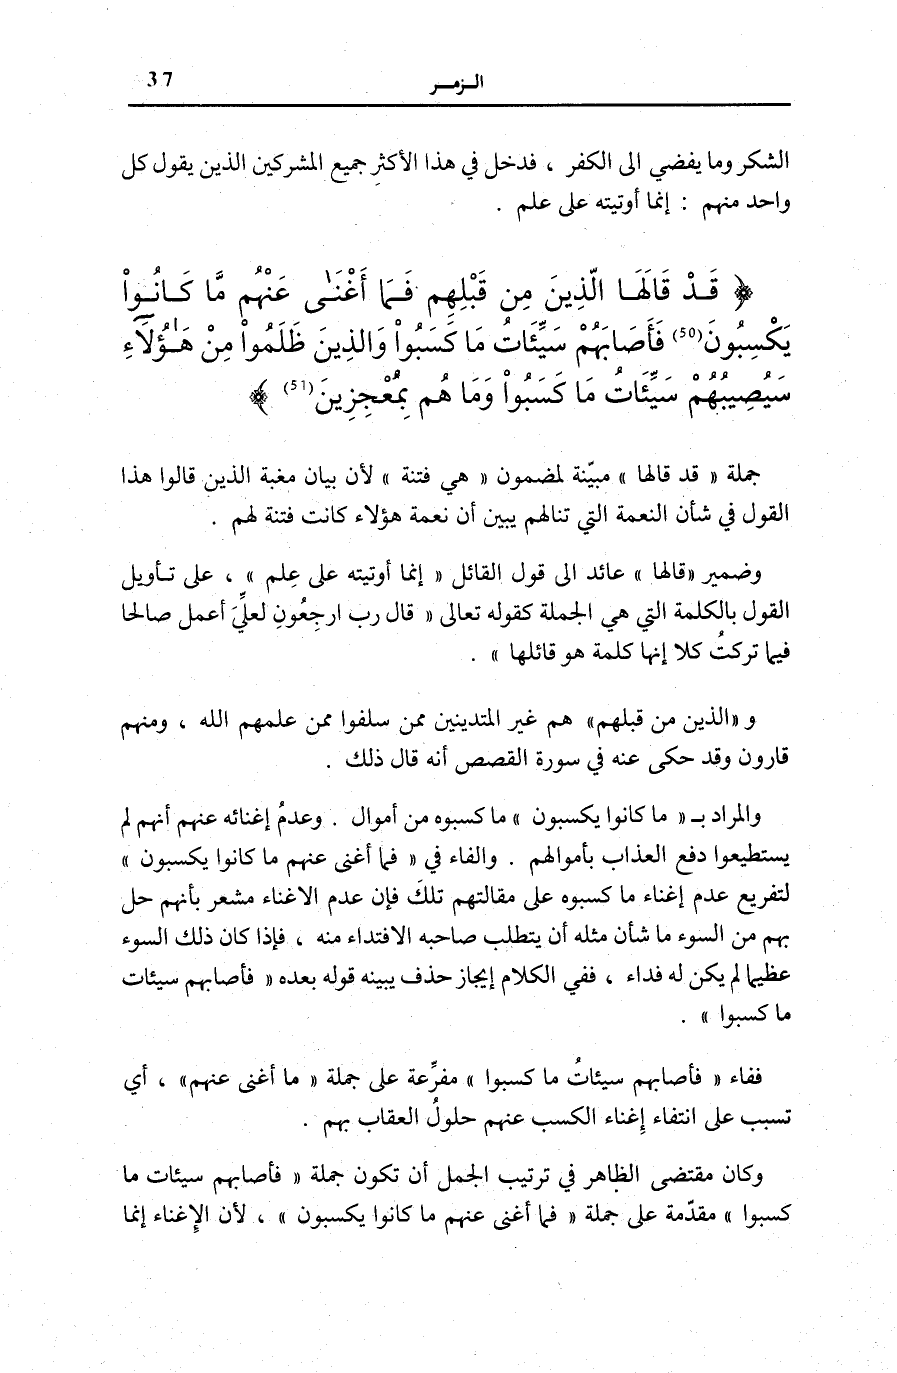 الـزمـر
37
الشكر وما يفضي الى الكفر ، فدخل في هذا الأكثر جميع المشركين الذين يقول كل
واحد منهم : إنما أوتيته على علم .
﴿ قَـدْ قَالَهَـا الَّذِينَ مِن قَبْلِهِم فَمَا أَغْنَىٰ عَنْهُم مَّا كَـانُـواْ
يَكْسِبُونَ(50) فَأَصَابَهُمْ سَيِّئَاتُ مَا كَسَبُواْ وَالذِينَ ظَلَمُواْ مِنْ هَـٰؤُلَآءِ
سَيُصِيبُهُمْ سَيِّئَاتُ مَا كَسَبُواْ وَمَا هُم بِمُعْجِزِينَ(51) ﴾
جملة « قد قالها » مبيّنة لمضمون « هي فتنة » لأن بيان مغبة الذين قالوا هذا
القول في شأن النعمة التي تنالهم يبين أن نعمة هؤلاء كانت فتنة لهم .
وضمير «قالها » عائد الى قول القائل « إنما أوتيته على عِلم » ، على تـأويل
القول بالكلمة التي هي الجملة كقوله تعالى « قال رب ارجِعُونِ لعلِّيَ أعمل صالحا
فيما تركتُ كلا إنها كلمة هو قائلها » .
و «الذين من قبلهم» هم غير المتدينين ممن سلفوا ممن علمهم الله ، ومنهم
قارون وقد حكى عنه في سورة القصص أنه قال ذلك .
والمراد بـ « ما كانوا يكسبون » ما كسبوه من أموال . وعدمُ إغنائه عنهم أنهم لم
يستطيعوا دفع العذاب بأموالهم . والفاء في « فما أغنى عنهم ما كانوا يكسبون »
لتفريع عدم إغناء ما كسبوه على مقالتهم تلكَ فإن عدم الاغناء مشعر بأنهم حل
بهم من السوء ما شأن مثله أن يتطلب صاحبه الافتداء منه ، فإذا كان ذلك السوء
عظيما لم يكن له فداء ، ففي الكلام إيجاز حذف يبينه قوله بعده « فأصابهم سيئات
ما كسبوا » .
ففاء « فأصابهم سيئاتُ ما كسبوا » مفرِّعة على جملة « ما أغنى عنهم» ، أي
تسبب على انتفاء إغناء الكسب عنهم حلولُ العقاب بهم .
وكان مقتضى الظاهر في ترتيب الجمل أن تكون جملة « فأصابهم سيئات ما
كسبوا » مقدّمة على جملة « فما أغنى عنهم ما كانوا يكسبون » ، لأن الإغناء إنما